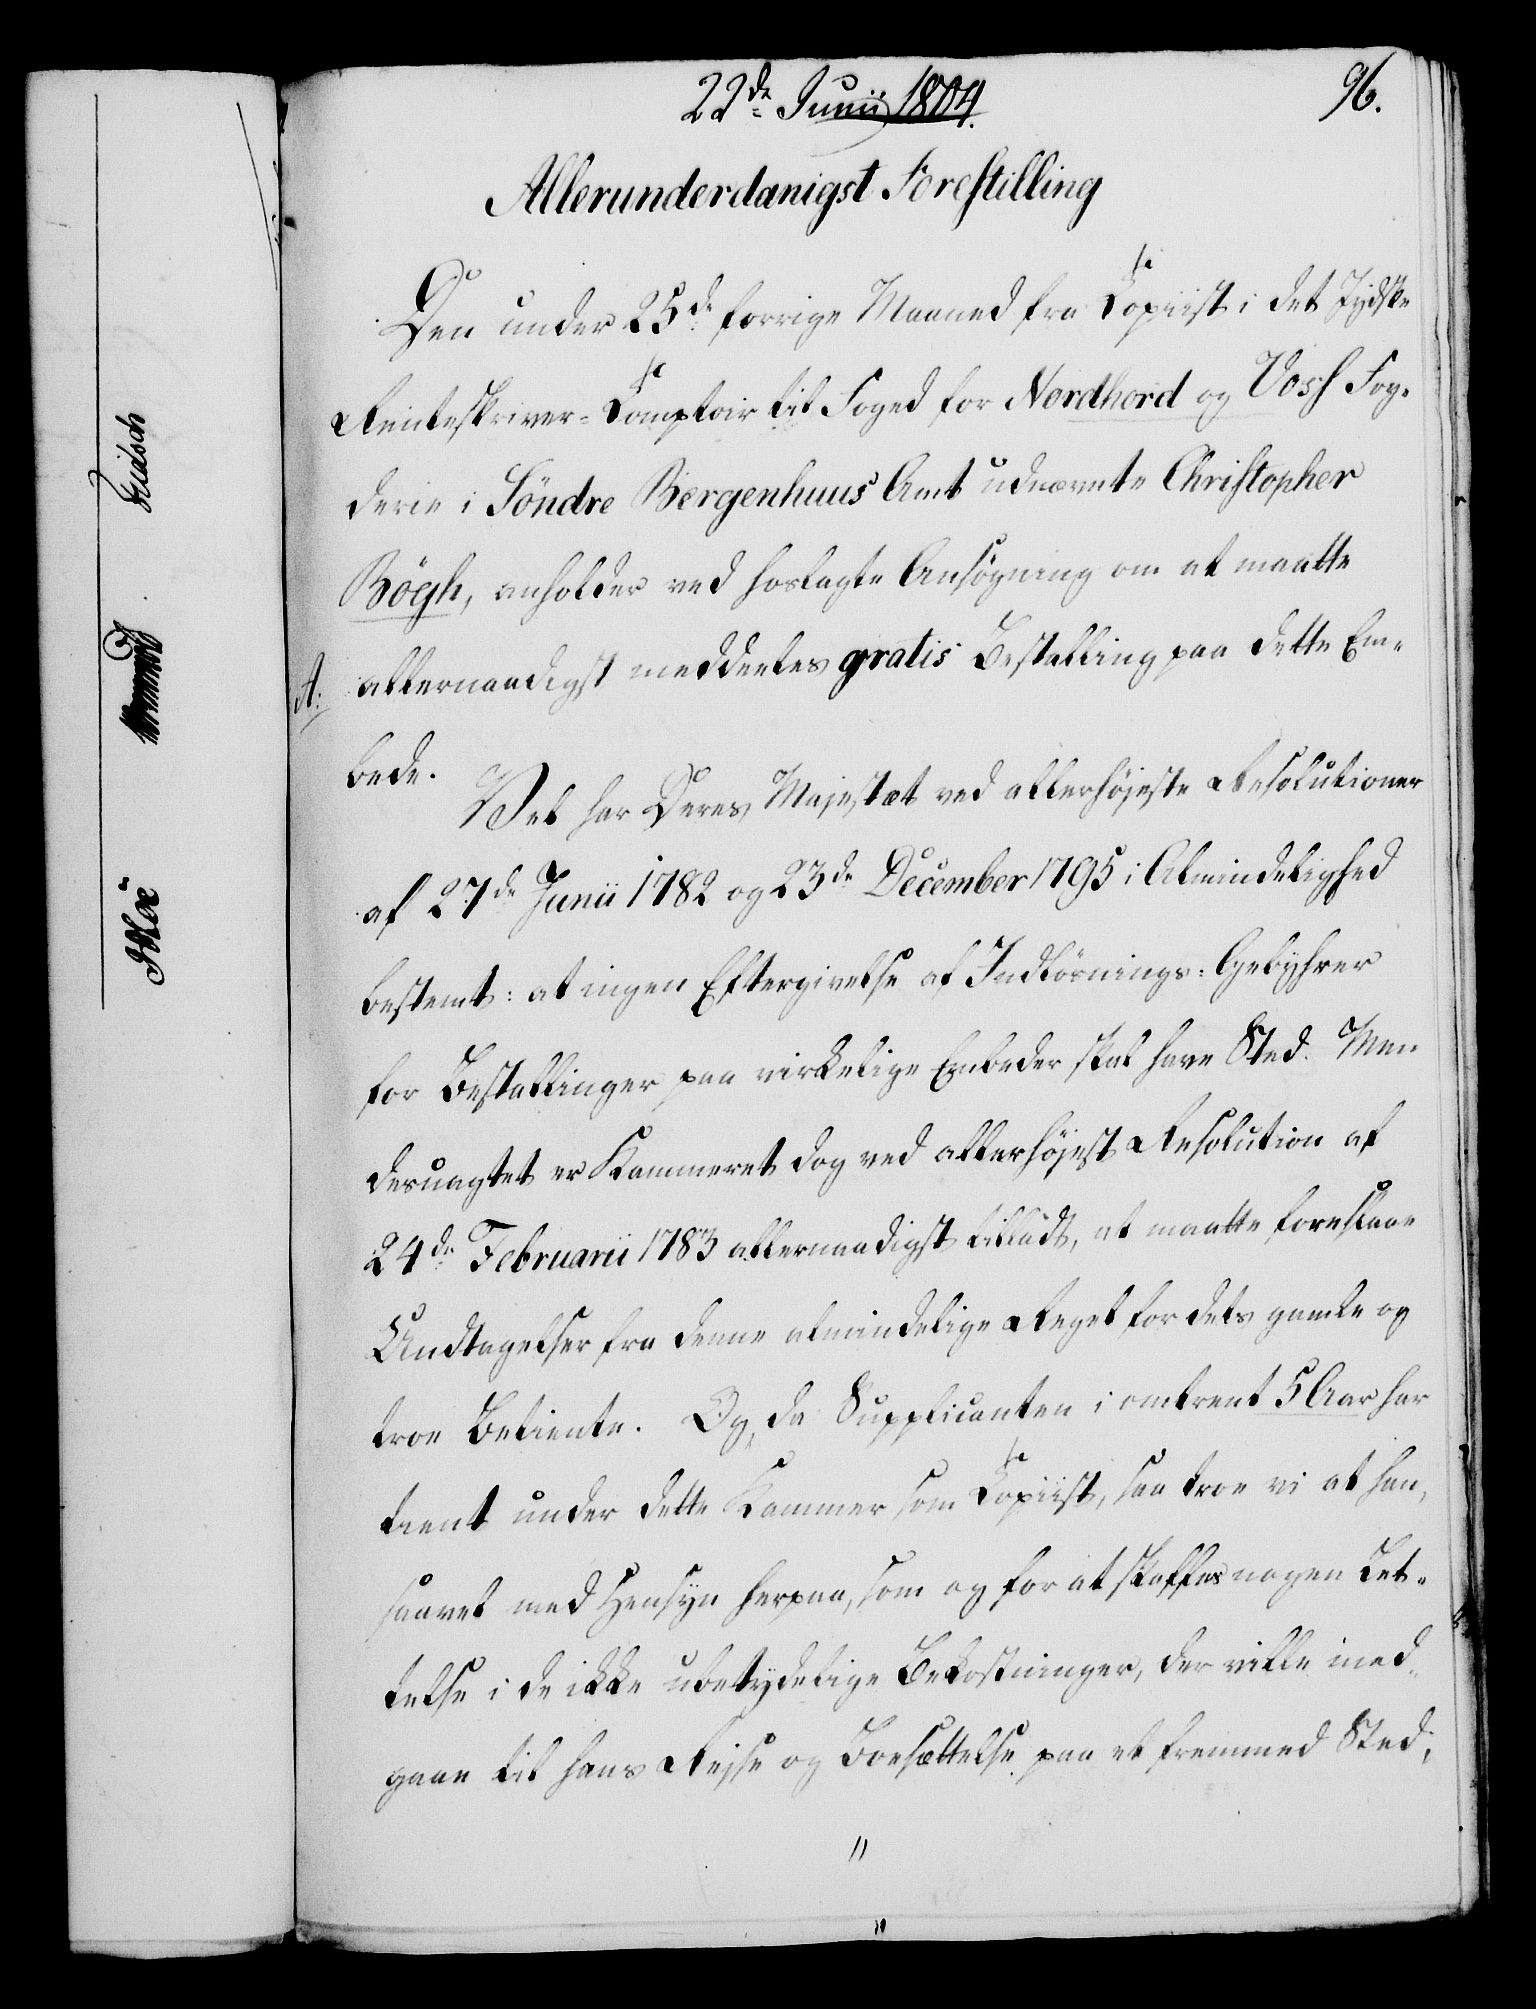 22de Junii 1804.
96.
Allerunderdanigst Forestilling
Den under 25de forrige Maaned fra Copiist i det Jydske
Renteskriver-Comptoir til Foged for Nordhord og Voss Fog-
derie i Söndre Bergenhuus Amt udnævnte Christopher
Bögh, anholder ved hoslagte Ansøgning om at maatte
A: allernaadigst meddeeles gratis Bestalling paa dette Em-
bede.
Vel har Deres Majestæt ved allerhøjeste Resolutioner
af 27de Junii 1782 og 23de December 1795 i Almindelighed
bestemt: at ingen Eftergivelse af Indløsnings-Gebyhrer
for Bestallinger paa virkelige Embeder skal have Sted. Men
desuagtet er Kammeret dog ved allerhøjest Resolution af
24de Februarii 1783 allernaadigst tilladt, at maatte foreslaae
Undtagelser fra denne almindelige Regel for dets gamle og
troe Betiente. Og, da Supplicanten i omtrent 5 Aar har
tient under dette Kammer som Copiist, saa troe vi at han,
saavel med Hensyn herpaa, som og for at skaffes nogen Let-
telse i de ikke ubetydelige Bekostninger, der ville med-
gaae til hans Rejse og Boesættelse paa et fremmed Sted,
Moe